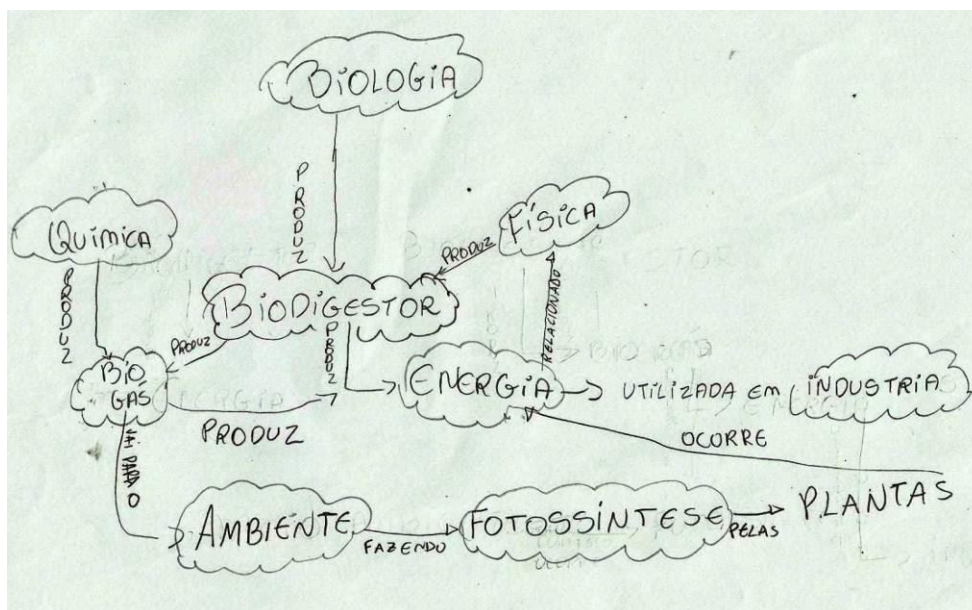 BIOLOGIA
PRODUZ
QUÍMICA
FÍSICA
PRODUZ
PRODUZ
BIODIGESTOR
RELACIONADO
PRODUZ
PRODUZ
BIO
GÁS
ENERGIA
UTILIZADA EM
INDUSTRIA
PRODUZ
OCORRE
VAI PARA O
AMBIENTE
FAZENDO
FOTOSSÍNTESE
PELAS
PLANTAS